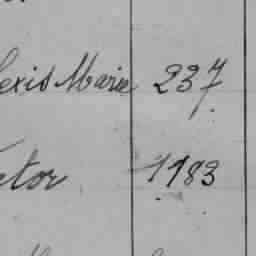 exis Marie 237
ctor 1183